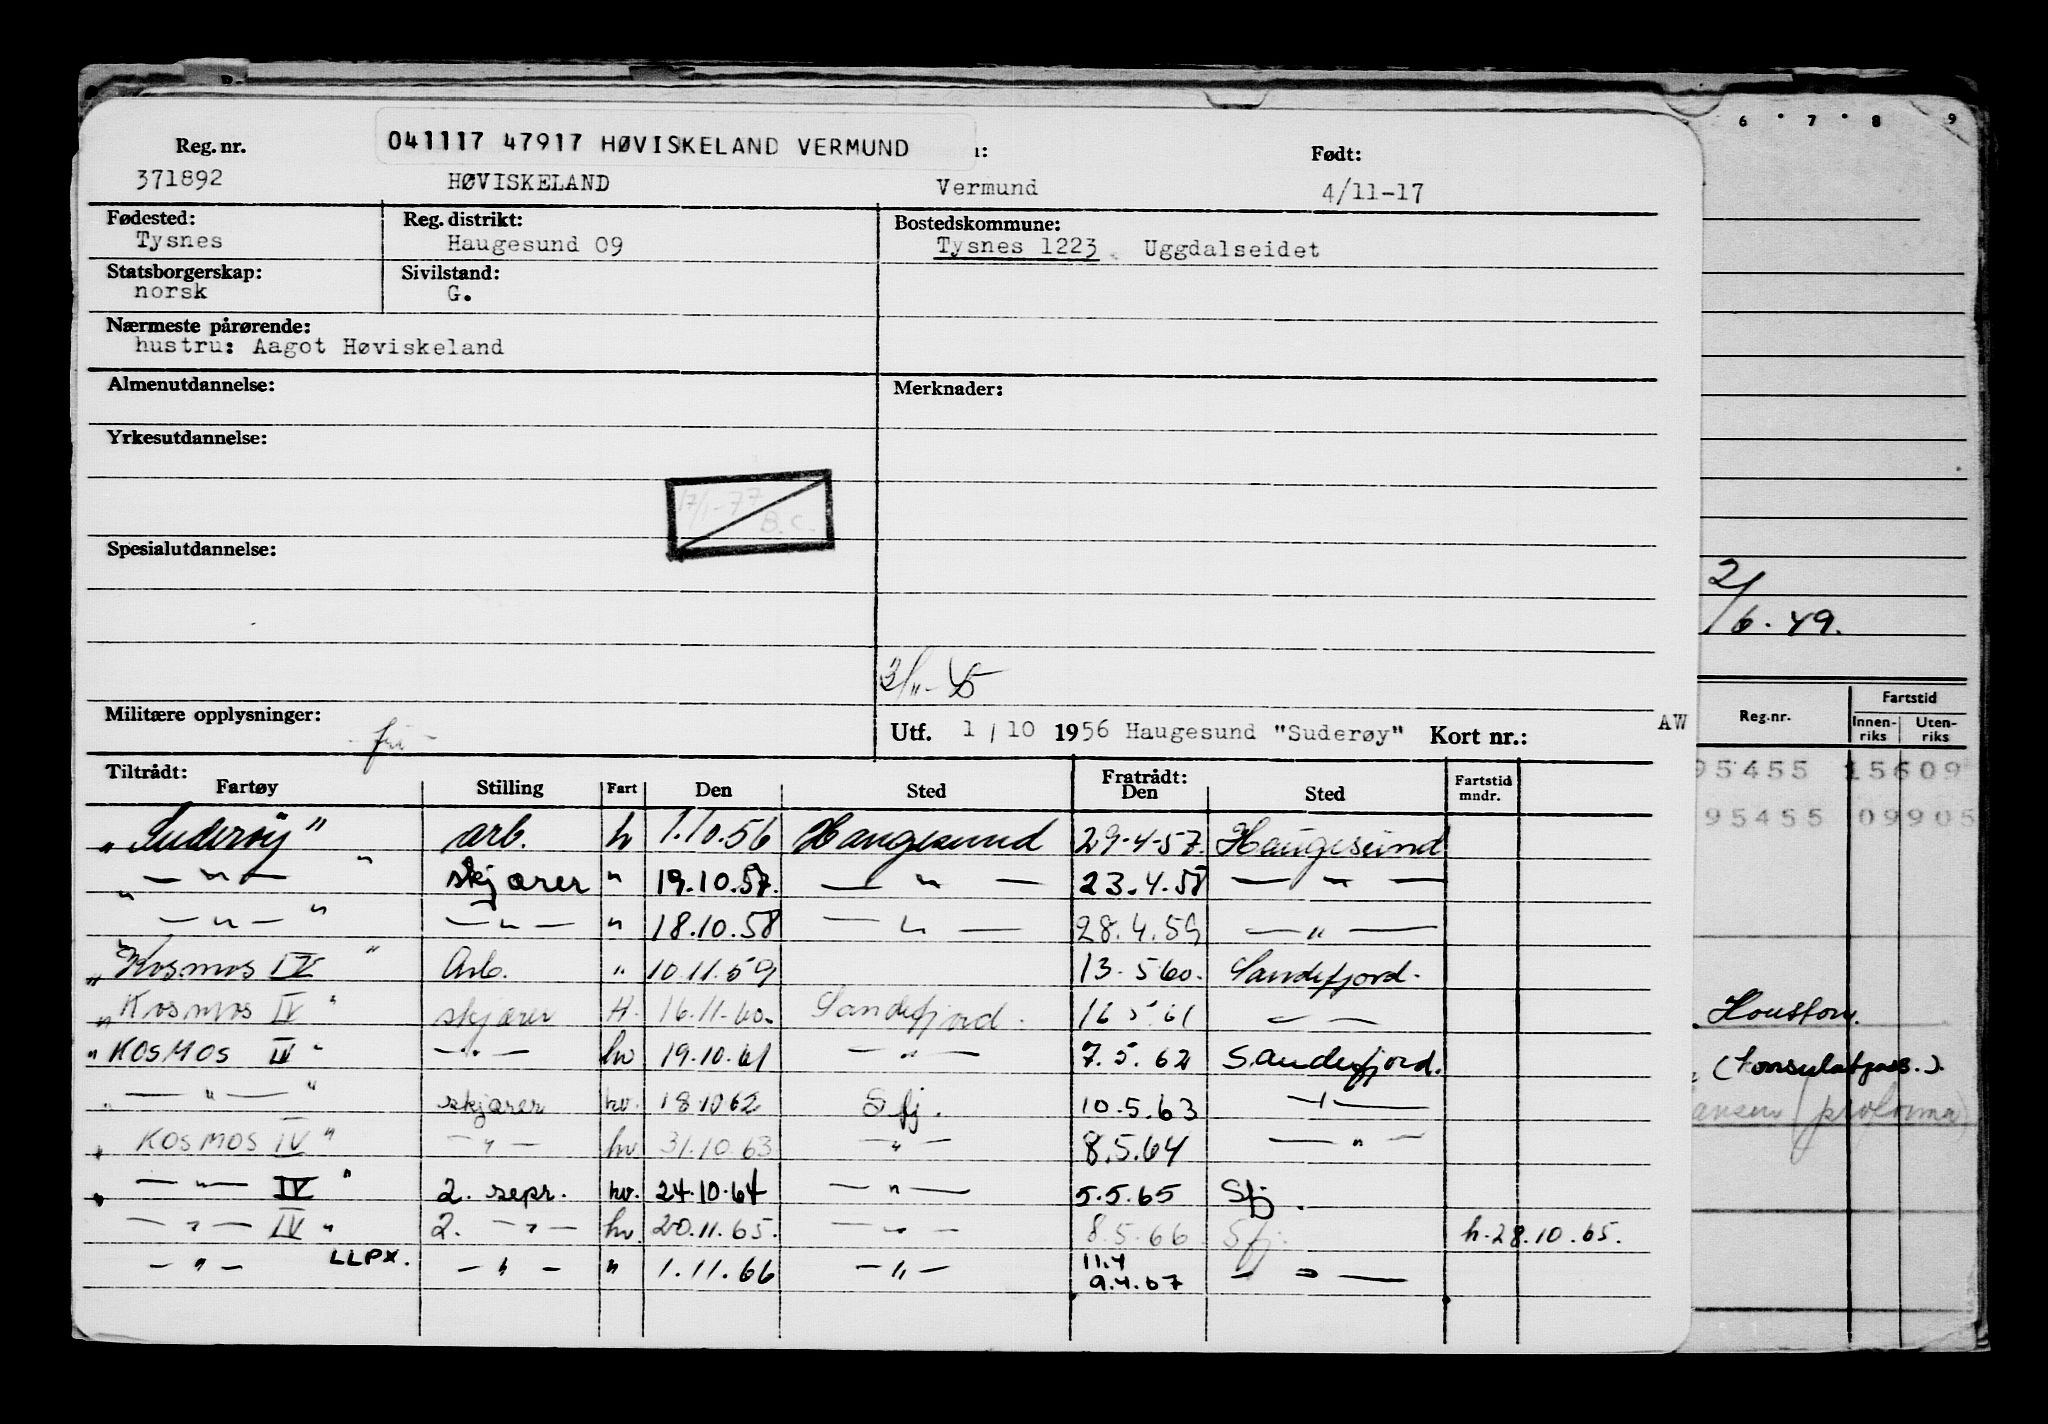 041117 47917 HØVISKELAND VERMUND
Reg. nr. Født:
371892 HØVISKELAND Vermund 4/11-17
Fødested: Reg. distrikt: Bostedskommune:
Tysnes Haugesund 09 Tysnes 1223 Uggdalseidet
Statsborgerskap: Sivilstand:
norsk G.
Nærmeste pårørende:
hustru: Aagot Høviskeland
Almenutdannelse: Merknader:
Yrkesutdannelse:
17/1-77 B.C.
Spesialutdannelse:
Militære opplysninger: fri
Utf. 1/10 1956 Haugesund "Suderøy" Kort nr.: AW
Tiltrådt: Fratrådt:
Fartøy Stilling Fart Den Sted Den Sted Fartstid mndr.
"Suderøy" arb. h 1.10.56 Haugesund 29.4.57. Haugesund
" — " — " skjærer " 19.10.57. — " — 23.4.58 — " —
— " — " — " — " 18.10.58 — " — 28.4.59 — " —
"Kosmos IV" Arb. " 10.11.59 13.5.60. Sandefjord.
"Kosmos IV" skjærer H. 16.11.60. Sandefjord. 16.5.61 — —
"KOSMOS IV" — " — hv 19.10.61 — " — 7.5.62 Sandefjord.
" — " — " skjærer hv. 18.10.62 Sfj. 10.5.63 — " —
" KOSMOS IV" — " — hv 31.10.63 — " — 8.5.64 — " —
" — " — IV " 2. sepr. hv. 24.10.64 — " — 5.5.65 Sfj.
— " — IV " 2. — " — hv. 20.11.65. — " — 8.5.66 Sfj. h.28.10.65.
— " — LLPX. — " — " 1.11.66 — " — 11.4 9.4.67 — " —
6 7 8 9
2/6.49.
Reg.nr. Fartstid
Innenriks Utenriks
95455 15609
95455 09905
Houston.
(Konsulatpass.).
ansen (proforma)